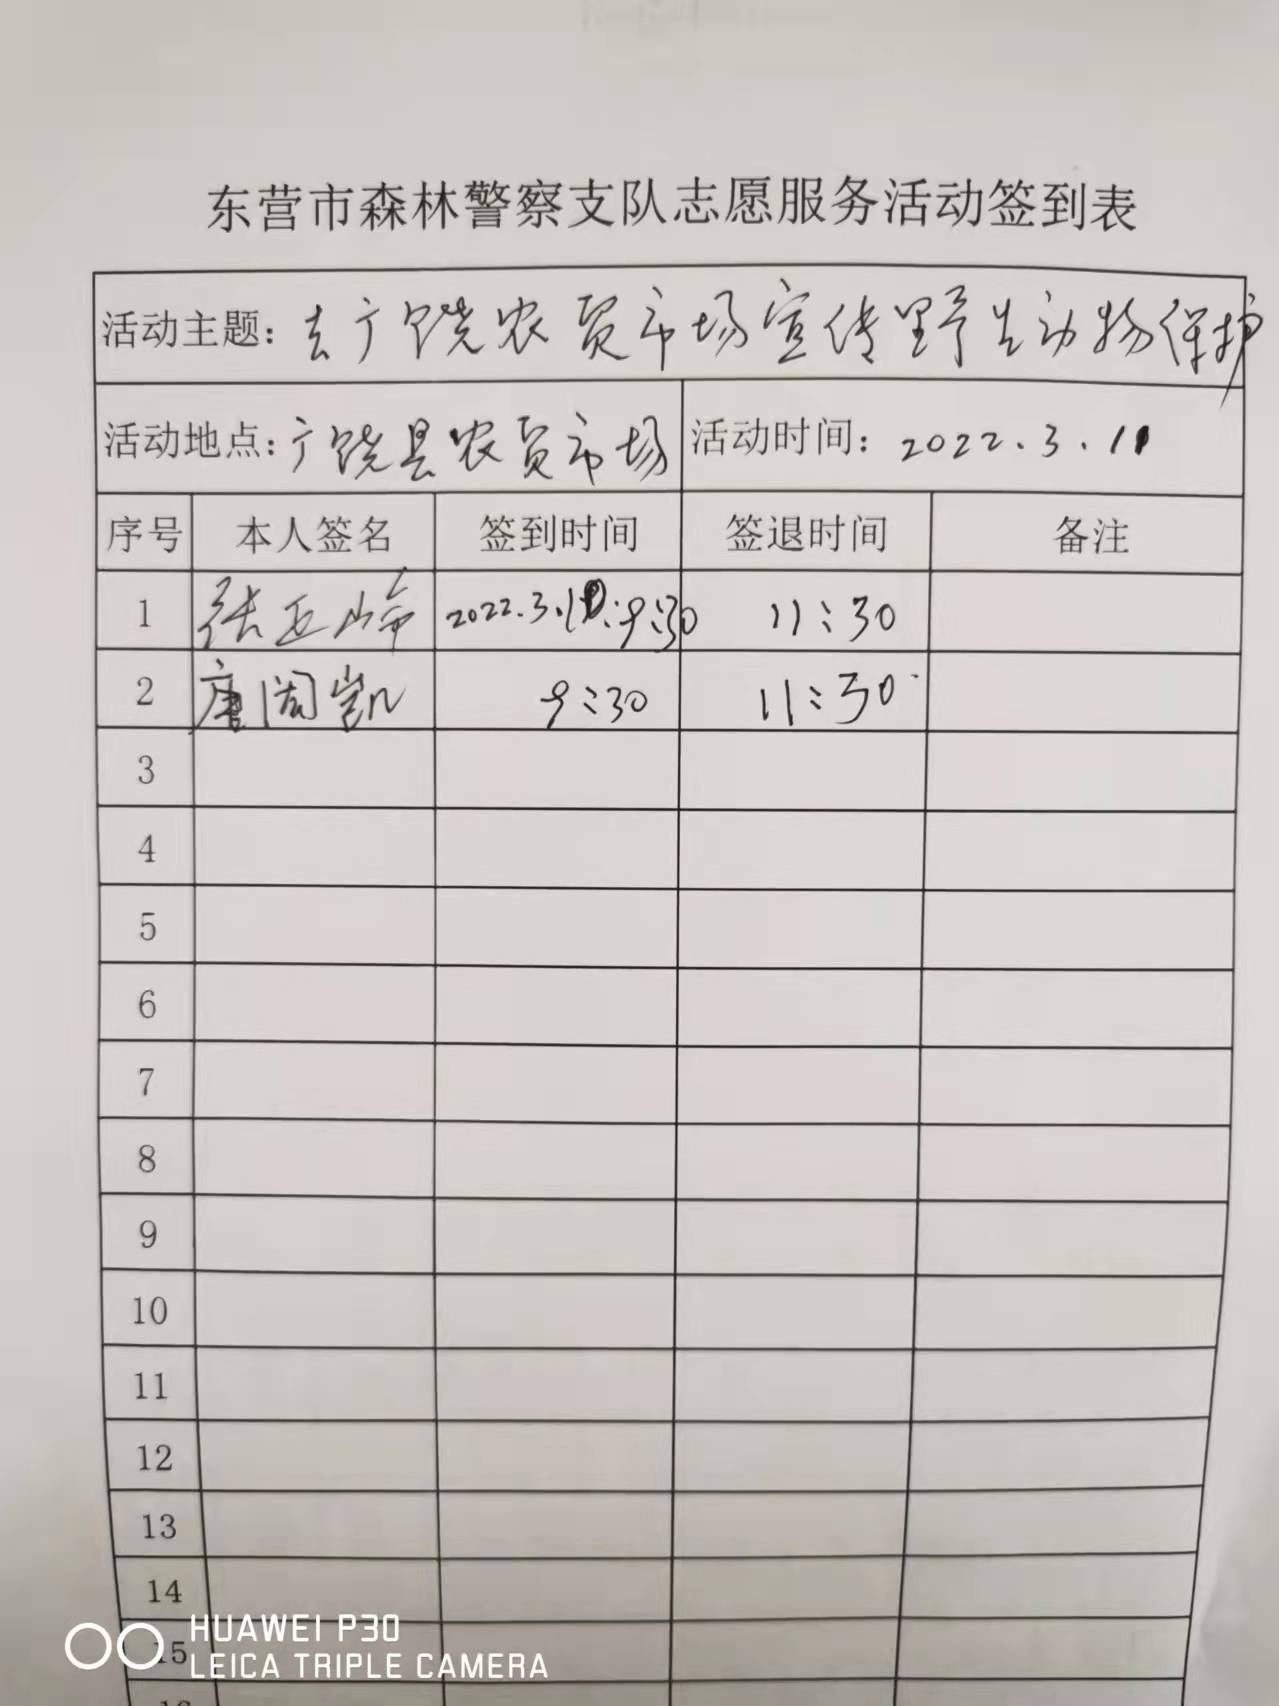 东营市森林警察支队志愿服务活动签到表
活动主题：去广饶农贸市场宣传野生动物保护
活动地点：广饶县农贸市场 活动时间：2022.3.11
序号 本人签名 签到时间 签退时间 备注
1 张亚峰 2022.3. 9:30 11:30
2 唐周凯 9:30 11:30
3
4
5
6
7
8
9
10
11
12
13
14
15
HUAWEI P30
LEICA TRIPLE CAMERA